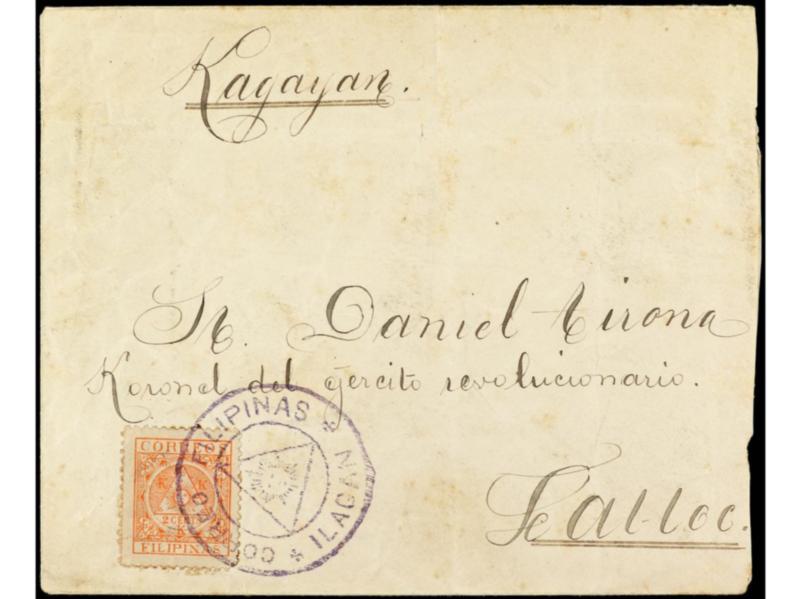 Kagayan.
Sr. Daniel Tirona
Koronel del ejercito revolucionario.
FILIPINAS * ILAGAN * CORREO
CORREOS
K K
2 CENT
FILIPINAS